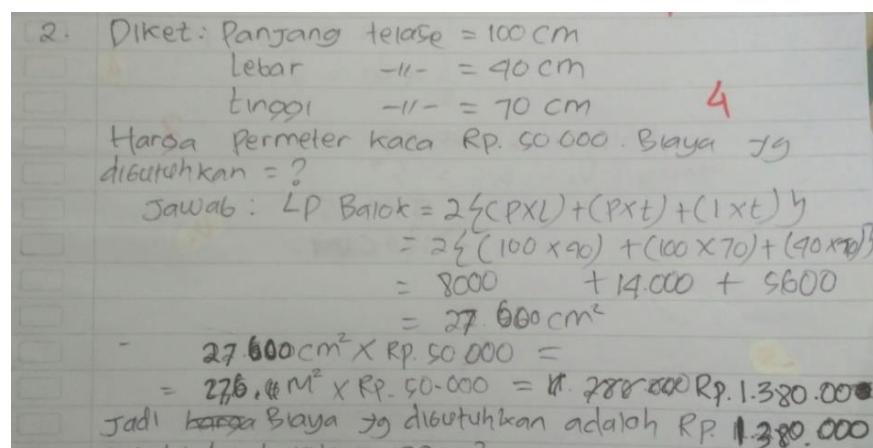 2. Diket: Panjang telase = 100 cm
Lebar -11- = 40 cm
tinggi -11- = 70 cm
4
Harga Permeter kaca Rp. 50 000. Biaya yg
dibutuhkan = ?
Jawab: LP Balok = 2{(PXL)+(Pxt)+(lxt)}
= 2{(100 x 40) + (100 x 70) + (40 x 70)}
= 8000 + 14.000 + 5600
= 27.600 cm²
- 27.600 cm² X Rp. 50 000 =
= 276, M² X Rp. 50.000 = Rp. 1.380.000
Jadi Biaya yg dibutuhkan adalah Rp. 1.380.000